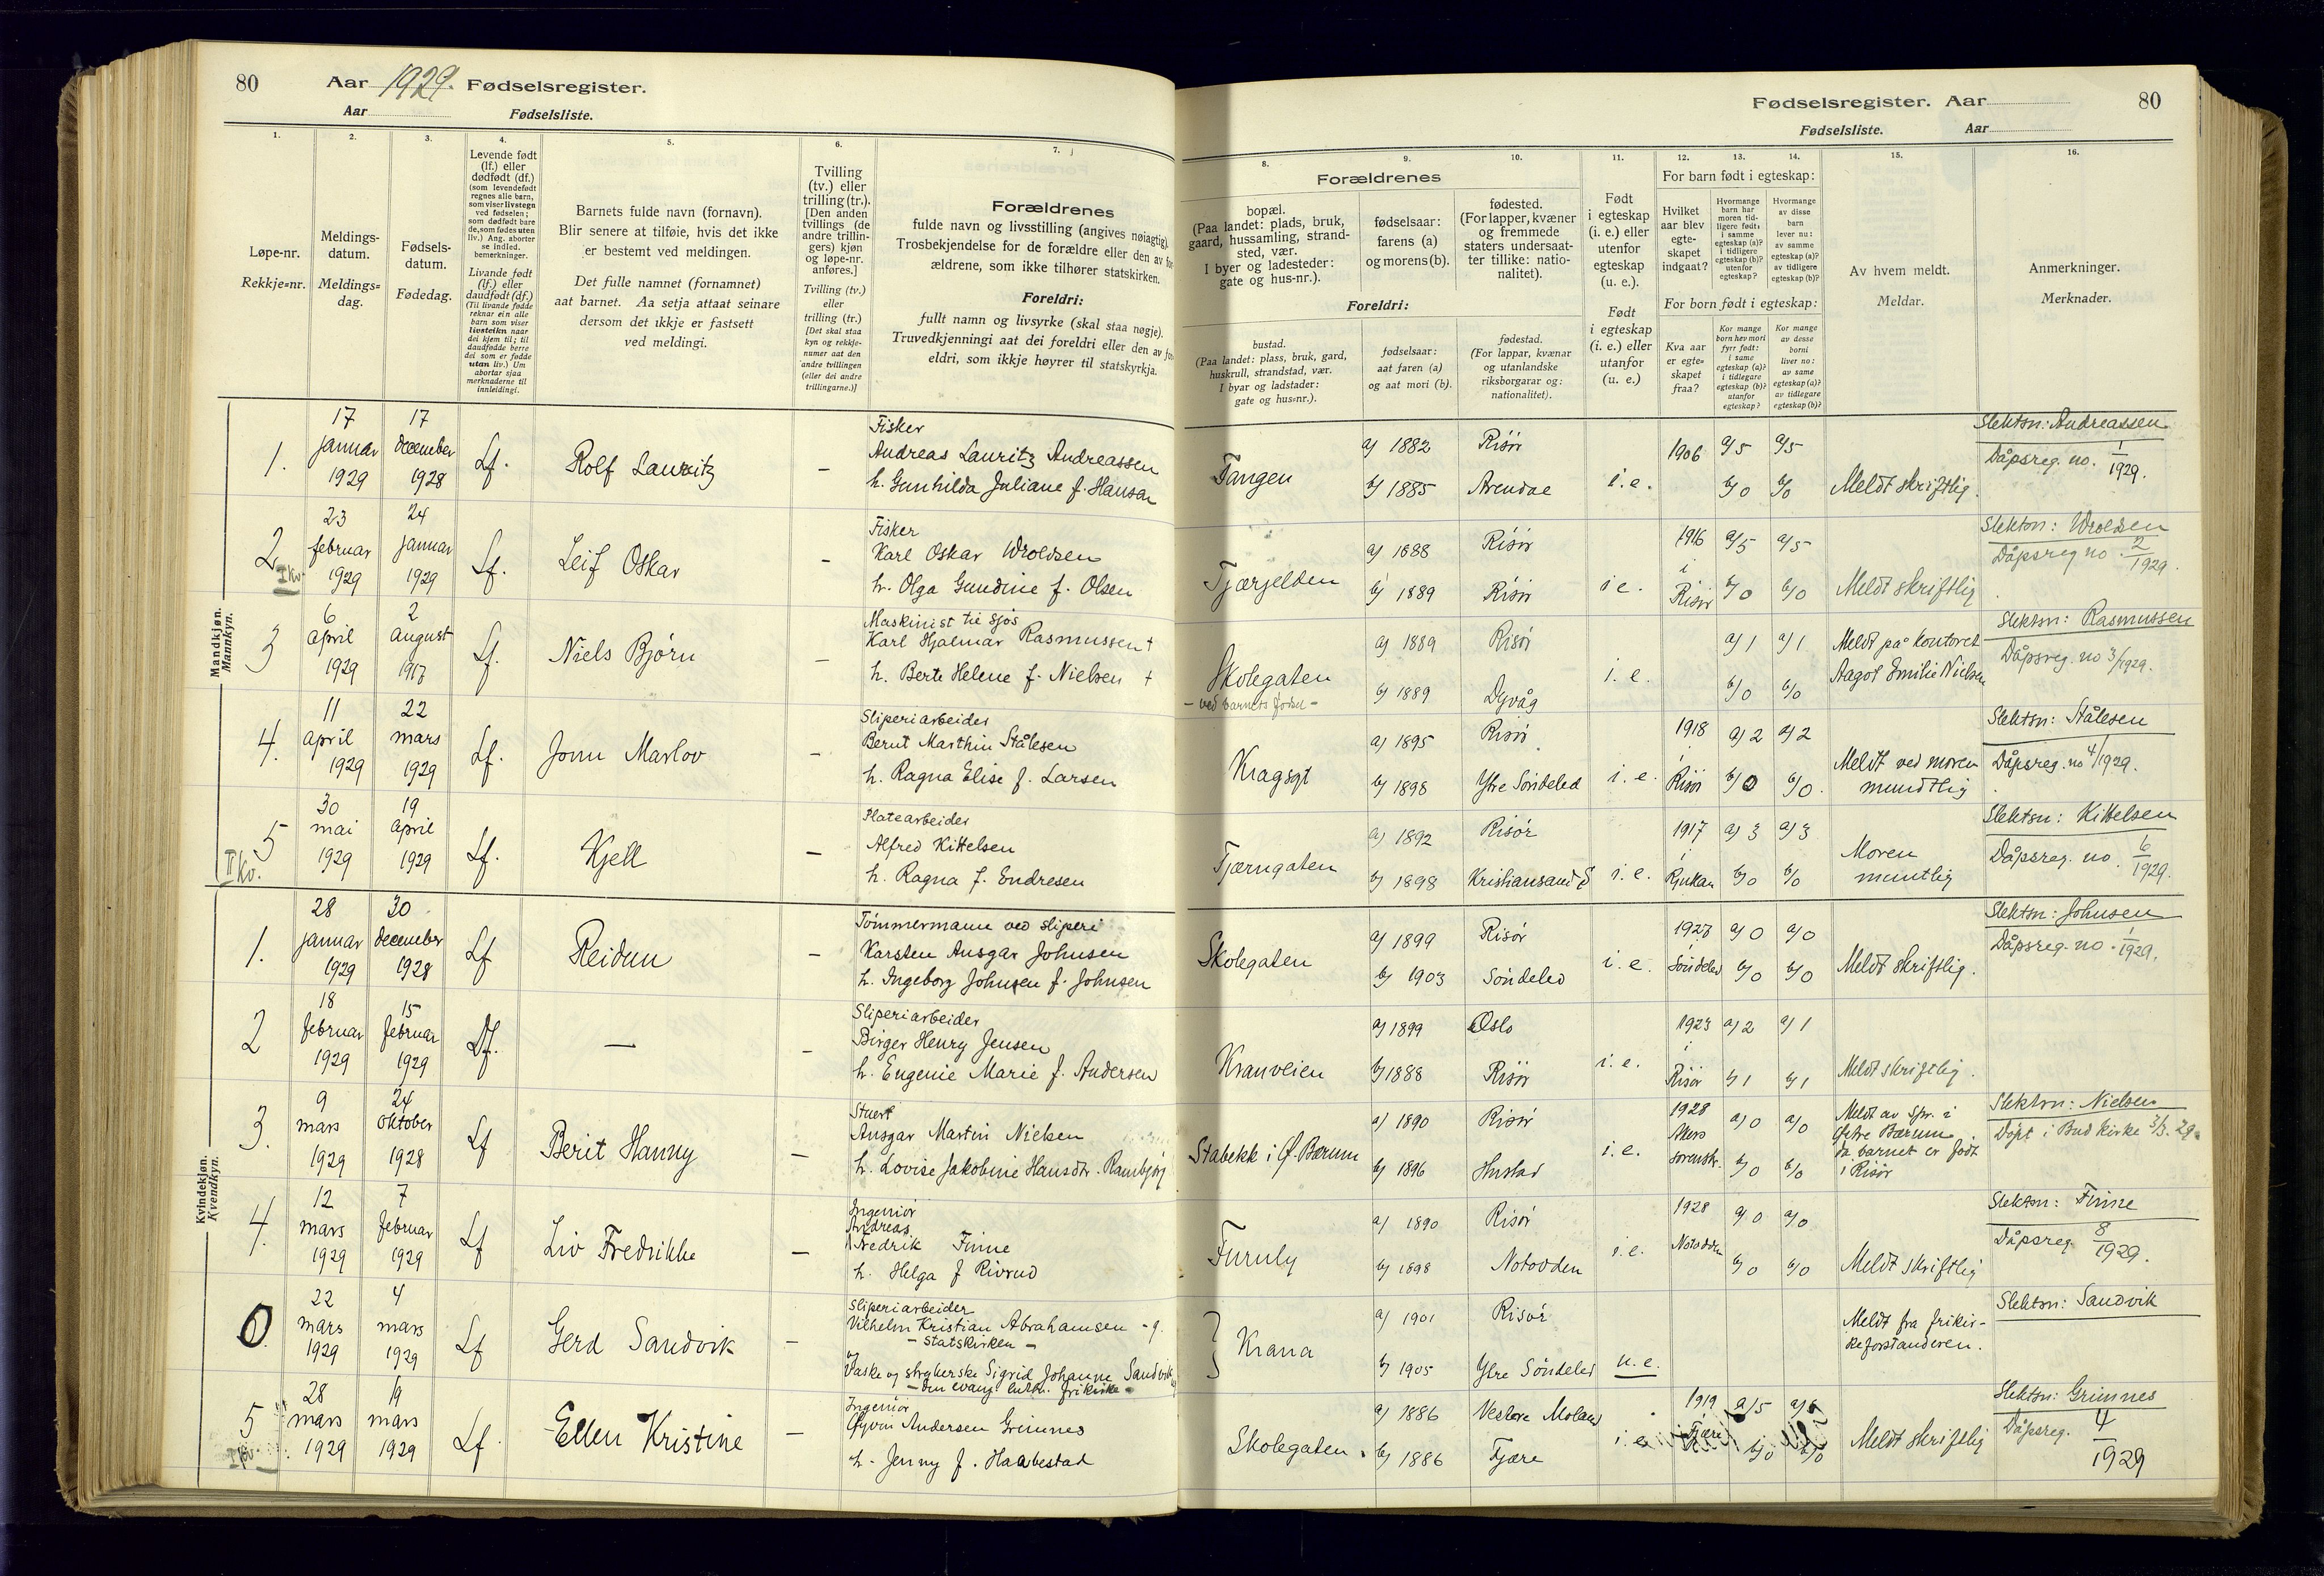 80 Aar 1929. Fødselsregister.
Aar Fødselsliste.
Fødselsregister. Aar 80
Fødselsliste. Aar
1. 2. 3. 4. 5. 6. 7.
Løpe-nr.
Rekkje-nr.
Meldings-
datum.
Meldings-
dag.
Fødsels-
datum.
Fødedag.
Levende født
(lf.) eller
dødfødt (df.)
(som levendefødt
regnes alle barn,
som viser livstegn
ved fødselen;
som dødfødt bare
de, som fødes uten
liv.) Ang. aborter
se indled.
bemerkninger.
Livande født
(lf.) eller
daudfødt (df.)
(Til livande fødde
reknar ein alle
barn som viser
livsteikn naar
dei kjem til; til
daudfødde berre
dei som er fødde
utan liv.) Um
abortar sjaa
merknaderne til
innleidingi.
Barnets fulde navn (fornavn).
Blir senere at tilføie, hvis det ikke
er bestemt ved meldingen.
Det fulle namnet (fornamnet)
aat barnet. Aa setja attaat seinare
dersom det ikkje er fastsett
ved meldingi.
Tvilling
(tv.) eller
trilling (tr.).
[Den anden
tvillings (de
andre trillin-
gers) kjøn
og løpe-nr.
anføres.]
Tvilling (tv.)
eller
trilling (tr.)
[Det skal staa
kyn og rekkje-
numer aat den
andre tvillingen
(eller dei andre
trillingarne.)]
Forældrenes
fulde navn og livsstilling (angives nøiagtig).
Trosbekjendelse for de forældre eller den av for-
ældrene, som ikke tilhører statskirken.
Foreldri:
fullt namn og livsyrke (skal staa nøgje).
Truvedkjenningi aat dei foreldri eller den av for-
eldri, som ikkje høyrer til statskyrkja.
8. 9. 10. 11. 12. 13. 14. 15. 16.
Forældrenes
bopæl.
(Paa landet: plads, bruk,
gaard, hussamling, strand-
sted, vær.
I byer og ladesteder:
gate og hus-nr.).
fødselsaar:
farens (a)
og morens (b).
fødested.
(For lapper, kvæner
og fremmede
staters undersaat-
ter tillike: natio-
nalitet).
Foreldri:
bustad.
(Paa landet: plass, bruk, gard,
huskrull, strandstad, vær.
I byar og ladstader:
gate og hus-nr.).
fødselsaar:
aat faren (a)
og aat mori (b).
fødestad.
(For lappar, kvænar
og utanlandske
riksborgarar og:
nationalitet).
Født
i egteskap
(i. e.) eller
utenfor
egteskap
(u. e.).
Født
i egteskap
(i. e.) eller
utanfor
(u. e.)
For barn født i egteskap:
Hvilket
aar blev
egte-
skapet
indgaat?
Hvormange
barn har
moren tid-
ligere født:
i samme
egteskap (a)?
i tidligere
egteskap (b)?
utenfor
egteskap?
Hvormange
av disse
barn
lever nu:
av samme
egteskap (a)?
av tidligere
egteskap (b)?
For born født i egteskap:
Kva aar
er egte-
skapet
fraa?
Kor mange
born hev mori
fyrr født:
i same
egteskap (a)?
i tidlegare
egteskap (b)?
utanfor
egteskap?
Kor mange
av desse
borni
liver no:
av same
egteskap (a)?
av tidlegare
egteskap (b)?
Av hvem meldt.
Meldar.
Anmerkninger.
Merknader.
Mandkjøn.
Mannkyn.
1. 17 januar 1929 17 december 1928 Lf. Rolf Lauritz –
Fisker
Andreas Lauritz Andreassen
h. Gunhilda Juliane f. Hansen
Tangen a) 1882 Risør b) 1885 Arendal i. e. 1906 a) 5 a) 5 b) 0 b) 0 Meldt skriftlig.
Slektsn: Andreassen
Dåpsreg. no. 1/1929.
2 I Kv. 23 februar 1929 24 januar 1929 Lf. Leif Oskar –
Fisker
Karl Oskar Wroldsen
h. Olga Gundine f. Olsen
Tjærjelden a) 1888 Risør b) 1889 Risør i e. 1916 i Risør a) 5 a) 5 b) 0 b) 0 Meldt skriftlig
Slektsn: Wroldsen
Dåpsreg no. 2/1929.
3 6 april 1929 2 august 1917 Lf. Niels Bjørn –
Maskinist til sjøs
Karl Hjalmar Rasmussen +
h. Berte Helene f. Nielsen +
Skolegaten
– ved barnets fødsel –
a) 1889 Risør b) 1889 Dyvåg i. e. a) 1 a) 1 b) 0 b) 0
Meldt på kontoret
Aagot Emilie Nielsen
Slektsn: Rasmussen
Dåpsreg. no 3/1929.
4. 11 april 1929 22 mars 1929 Lf. Jonn Marlov –
Sliperiarbeider
Bernt Marthin Stålesen
h. Ragna Elise f. Larsen
Kragsgt a) 1895 Risør b) 1898 Ytre Søndeled i. e. 1918 i Risør a) 2 a) 2 b) 0 b) 0.
Meldt ved moren
mundtlig
Slektsn: Stålesen
Dåpsreg. no 4/1929.
5 II Kv. 30 mai 1929 19 april 1929 Lf. Kjell –
Platearbeider
Alfred Kittelsen
h. Ragna f. Endresen
Tjærngaten a) 1892 Risør b) 1898 Kristiansand S i. e. 1917 i Rjukan a) 3 a) 3 b) 0 b) 0
Moren
muntlig
Slektsn: Kittelsen
Dåpsreg. no. 6/1929.
Kvindekjøn.
Kvendkyn.
1. 28 januar 1929 30 december 1928 Lf Reidun –
Tømmermann ved sliperi
Karsten Ansgar Johnsen
h. Ingeborg Johnsen f. Johnsen
Skolegaten a) 1899 Risør b) 1903 Søndeled i. e. 1927 Søndeled a) 0 a) 0 b) 0 b) 0 Meldt skriftlig.
Slektsn: Johnsen
Dåpsreg. no. 1/1929.
2 18 februar 1929 15 februar 1929 Df. — –
Sliperiarbeider
Birger Henry Jensen
h. Eugenie Marie f. Andersen
Kranveien a) 1899 Oslo b) 1888 Risør i. e. 1923 i Risør a) 2 a) 1 b) 1 b) 1 Meldt skriftlig.
3. 9 mars 1929 24 oktober 1928 Lf Berit Hanny –
Stuert
Ansgar Martin Nielsen
h. Lovise Jakobine Hansdtr. Rambjørg
Stabekk i Ø. Bærum a) 1890 Risør b) 1896 Hustad i. e. 1928 Akers sorenskr. a) 0 a) 0 b) 0 b) 0
Meldt av spr. i
Østre Bærum
da barnet er født
i Risør
Slektsn: Nielsen
Døpt i Bud kirke 3/3. 29.
4. 12 mars 1929 7 februar 1929 Lf Liv Fredrikke –
Ingeniør
Andreas
Fredrik Finne
h. Helga f Rivrud
Furuly a) 1890 Risør b) 1898 Notodden i. e. 1928 Notodden a) 0 a) 0 b) 0 b) 0 Meldt skriftlig
Slektsn: Finne
Dåpsreg. 8/1929.
0. 22 mars 1929 4 mars 1929 Lf Gerd Sandvik –
Sliperiarbeider
Vilhelm Kristian Abrahamsen - g.
– Statskirken –
og
Vaske og strykerske Sigrid Johanne Sandvik
– Den evang. luth. frikirke –
Krana a) 1901 Risør b) 1905 Ytre Søndeled u. e.
Meldt fra frikir-
keforstanderen.
Slektsn: Sandvik
5 I Kv. 28 mars 1929 19 mars 1929 Lf. Ellen Kristine –
Ingeniør
Øyvin Andersen Grimnes
h. Jenny f. Haabestad
Skolegaten. a) 1886 Vestre Moland b) 1886 Fjære i. e. 1919 i Fjære a) 5 b) 0 b) 0 Meldt skriftlig
Slektsn: Grimnes
Dåpsreg. 4/1929